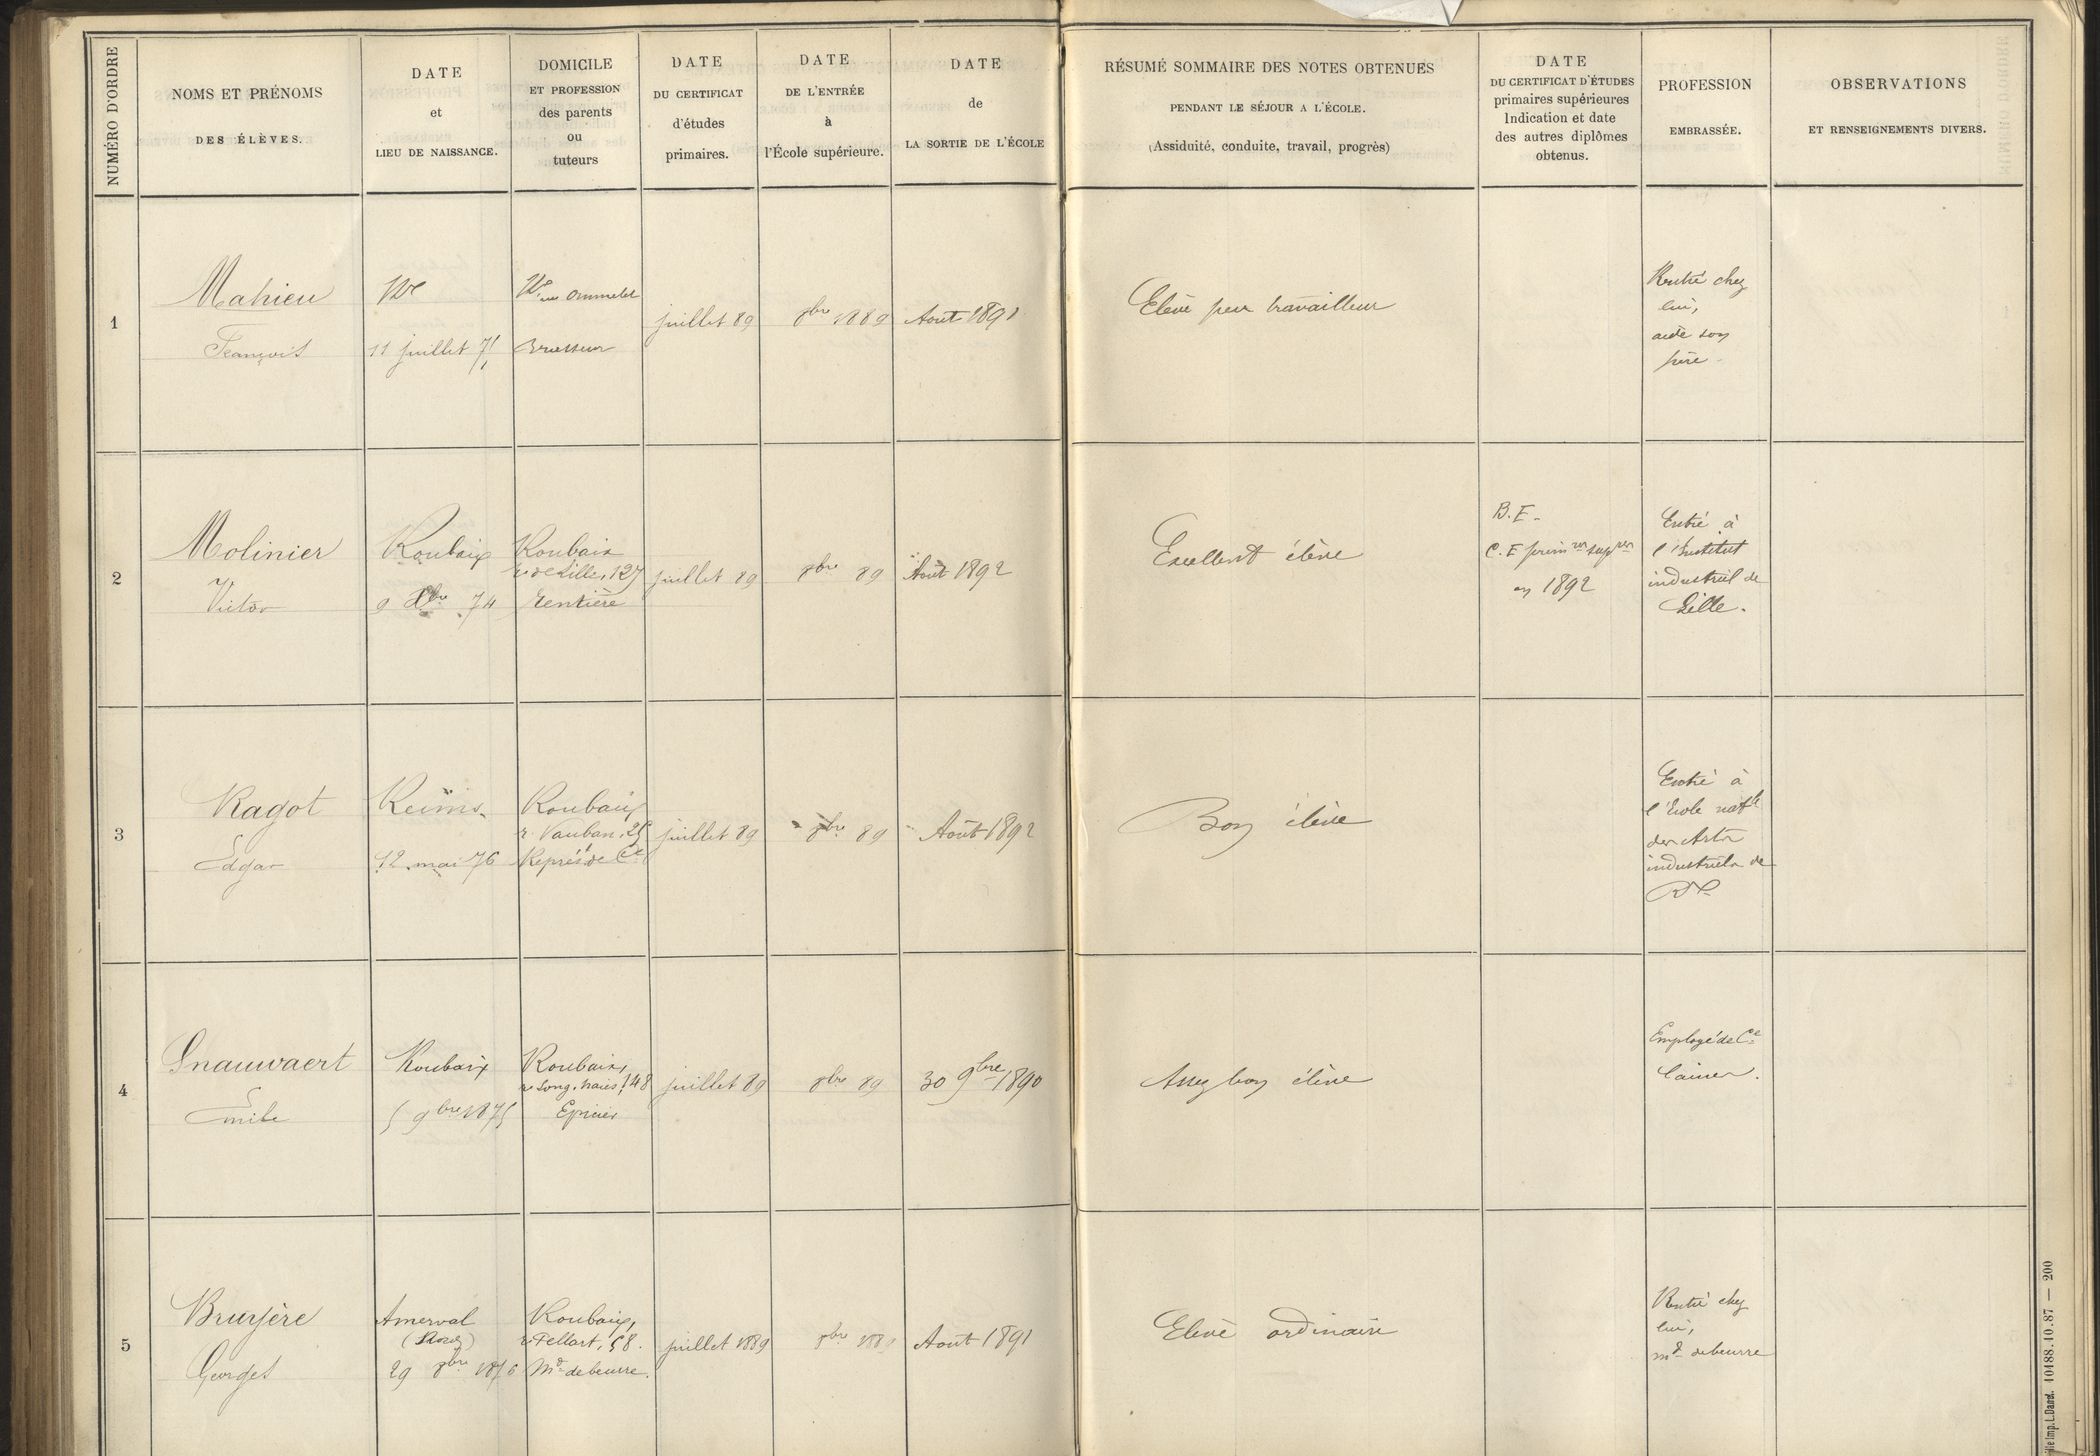 NUMÉRO D'ORDRE
NOMS ET PRÉNOMS
DES ÉLÈVES.
DATE
et
LIEU DE NAISSANCE.
DOMICILE
ET PROFESSION
des parents
ou
tuteurs
DATE
DU CERTIFICAT
d'études
primaires.
DATE
DE L'ENTRÉE
à
l'École supérieure.
DATE
de
LA SORTIE DE L'ÉCOLE
RÉSUMÉ SOMMAIRE DES NOTES OBTENUES
PENDANT LE SÉJOUR A L'ÉCOLE.
(Assiduité, conduite, travail, progrès)
DATE
DU CERTIFICAT D'ÉTUDES
primaires supérieures
Indication et date
des autres diplômes
obtenus.
PROFESSION
EMBRASSÉE.
OBSERVATIONS
ET RENSEIGNEMENTS DIVERS.
1
Mahieu
François
11 juillet 71
rue Ommelet
Brasseur
juillet 89
8bre 1889
Août 1891
Elève peu travailleur
Rentré chez
lui,
aide son
père
2
Molinier
Victor
Roubaix
9 Xbre 74
Roubaix
r. de Lille, 127
Rentière
juillet 89
8bre 89
Août 1892
Excellent élève
B.E.
C.E primres supres
en 1892
Entré à
l'Institut
industriel de
Lille.
3
Ragot
Edgar
Reims
12 mai 76
Roubaix
r. Vauban, 25
Représt de Ce
juillet 89
8bre 89
Août 1892
Bon élève
Entré à
l'Ecole natle
des Arts
industriels de
Rx
4
Snauwaert
Emile
Roubaix
5 9bre 1875
Roubaix,
r. Long. haies, 148
Epicier
juillet 89
8bre 89
30 9bre 1890
Assez bon élève
Employé de Ce
laines.
5
Bruyère
Georges
Amerval
(Nord)
29 8bre 1876
Roubaix,
r. Pellart, 58.
Md de beurre.
juillet 1889
8bre 1889
Août 1891
Elève ordinaire
Rentré chez
lui,
md de beurre
Imp. L. Danel. 10488.10.87 — 200